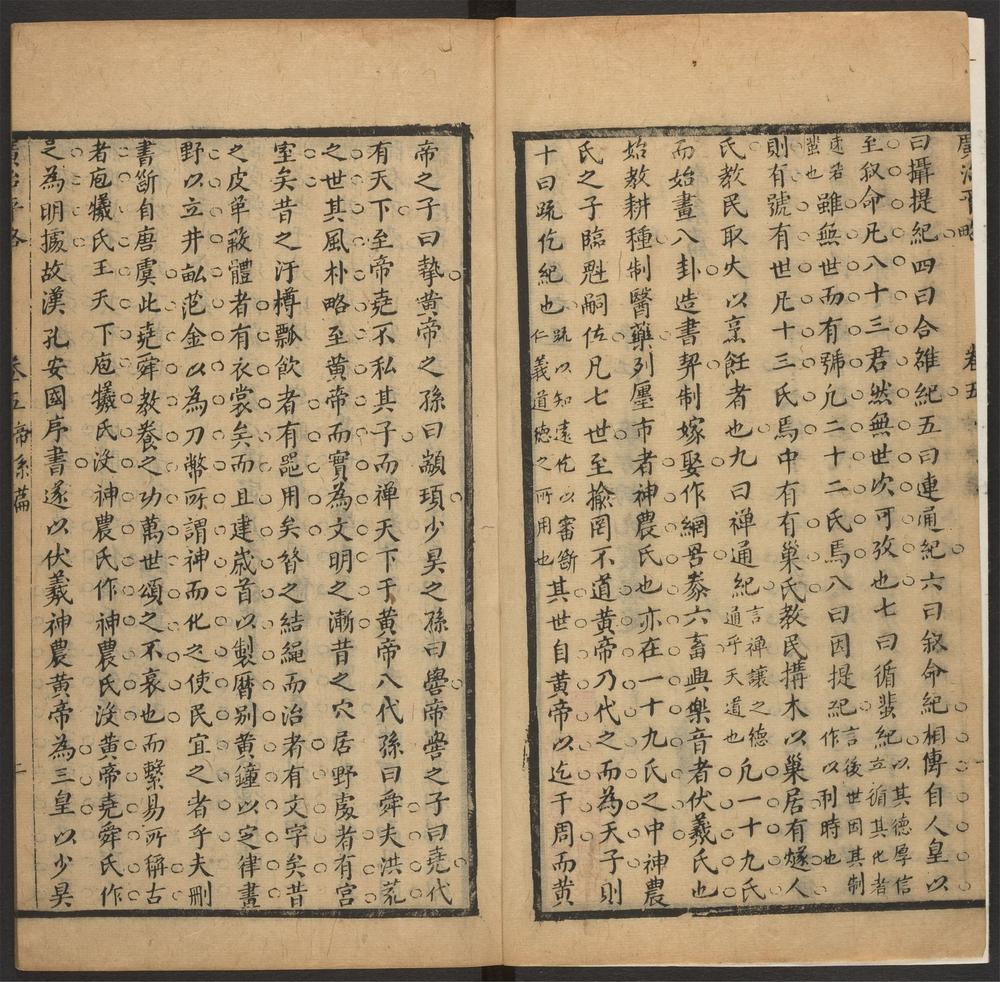 廣治平略 卷五
曰攝提紀四曰合雒紀五曰連通紀六曰叙命紀相傳自人皇以
至叙命凡八十三君然無世次可攷也七曰循蜚紀以其德厚信立循其化者
速若蜚也雖無世而有號凢二十二氏焉八曰因提紀言後世因其制作以利時也
則有號有世凡十三氏焉中有有巢氏教民搆木以巢居有燧人
氏教民取火以烹飪者也九曰禅通紀言禅讓之德通乎天道也凢一十九氏
而始畫八卦造書契制嫁娶作網罟豢六畜興樂音者伏羲氏也
始教耕種制醫藥列廛市者神農氏也亦在一十九氏之中神農
氏之子臨魁嗣位凡七世至揄罔不道黃帝乃代之而為天子則
十曰疏仡紀也疏以知遠仡以審斷仁義道德之所用也其世自黃帝以迄于周而黃
帝之子曰摯黃帝之孫曰顓頊少昊之孫曰嚳帝嚳之子曰堯代
有天下至帝堯不私其子而禅天下于黃帝八代孫曰舜夫洪荒
之世其風朴略至黃帝而實為文明之漸昔之穴居野處者有宮
室矣昔之汙樽瓢飲者有噐用矣昝之結繩而治者有文字矣昔
之皮革蔽體者有衣裳矣而且建歲首以製曆别黄鐘以定律畫
野以立井畝范金以為刀幣所謂神而化之使民宜之者乎夫刪
書斷自唐虞此堯舜教養之功萬世頌之不衰也而繫易所稱古
者庖犧氏王天下庖犧氏沒神農氏作神農氏沒黃帝堯舜氏作
足為明據故漢孔安國序書遂以伏羲神農黃帝為三皇以少昊
廣治平略 卷五帝系篇 一